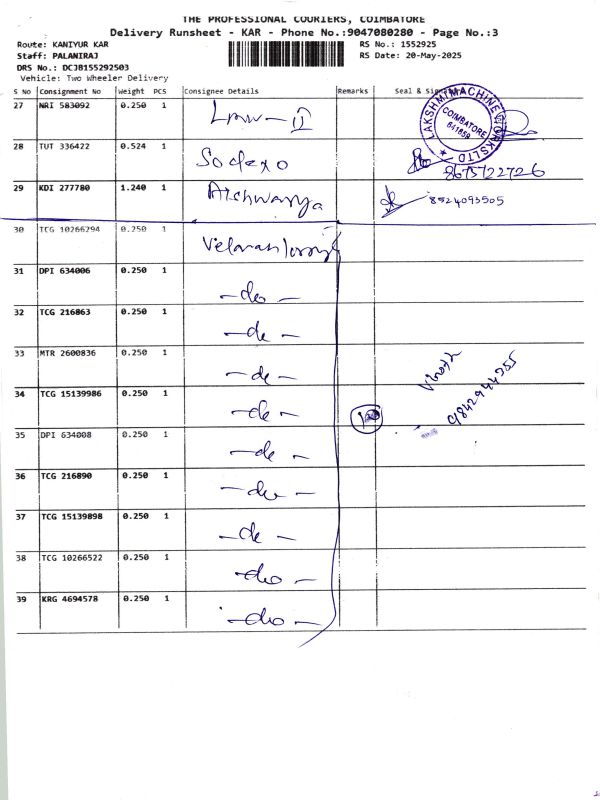 THE PROFESSIONAL COURIERS, COIMBATORE
Delivery Runsheet - KAR - Phone No.:9047080280 - Page No.:3
Route: KANIYUR KAR RS No.: 1552925
Staff: PALANIRAJ RS Date: 20-May-2025
DRS No.: DCJB155292503
Vehicle: Two Wheeler Delivery
S No Consignment No Weight PCS Consignee Details Remarks Seal &
27 NRI 583092 0.250 1
LAKSHMI MACHINE WORKS LTD
COIMBATORE
641659
28 TUT 336422 0.524 1 Sodexo
8675722726
29 KDI 277780 1.240 1 Aishwarya 8524093505
30 TCG 10266294 0.250 1
31 DPI 634006 0.250 1 -do-
32 TCG 216863 0.250 1 -do-
33 MTR 2600836 0.250 1 -do-
34 TCG 15139986 0.250 1 -do- 10
9842944355
35 DPI 634008 0.250 1 -do-
36 TCG 216890 0.250 1 -do-
37 TCG 15139898 0.250 1 -do-
38 TCG 10266522 0.250 1 -do-
39 KRG 4694578 0.250 1 -do-